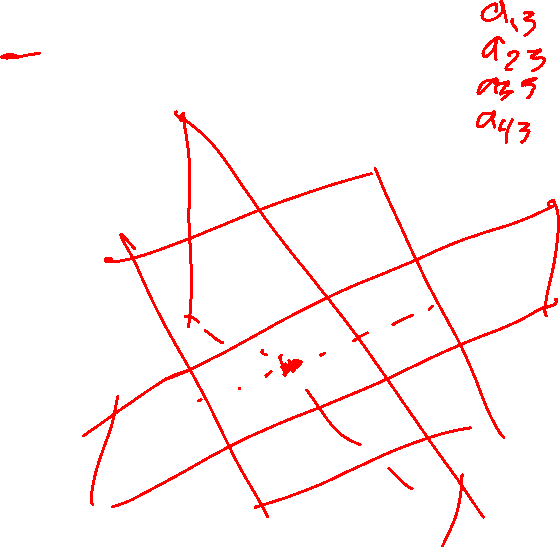 a13
a23
a33
a43